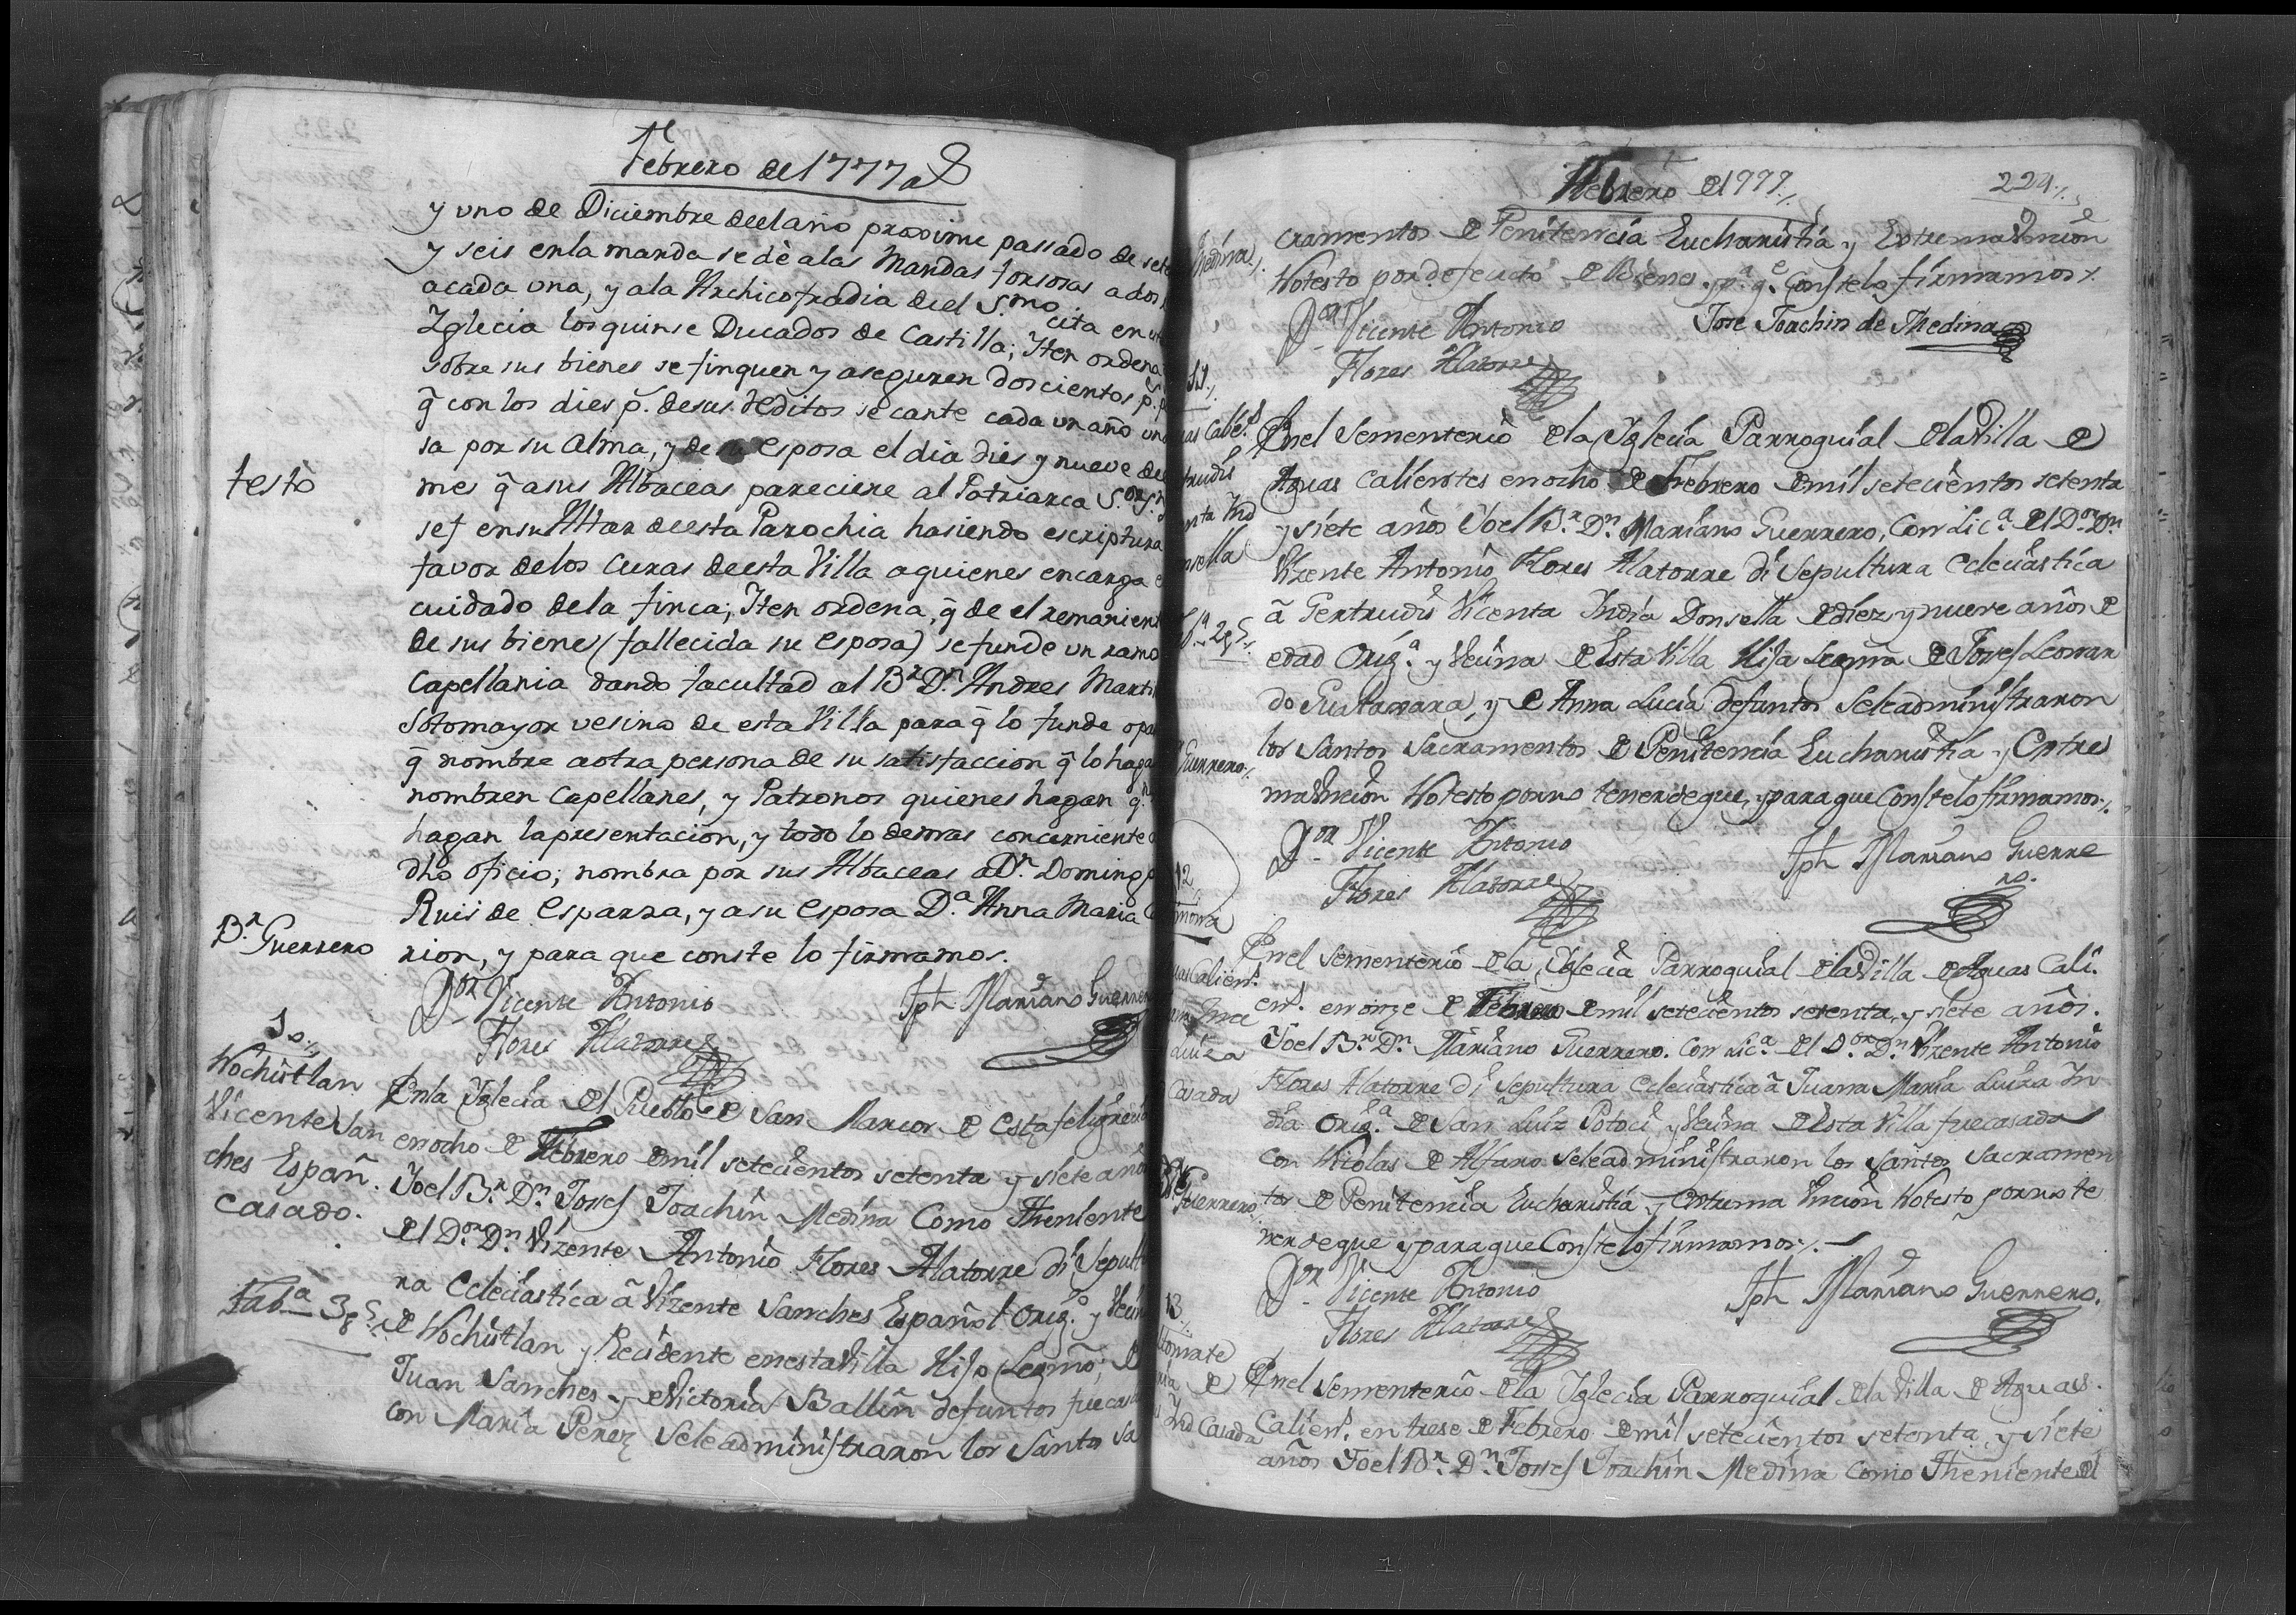 Febrero de 1777 a.s
y uno de Diciembre deel año proximo passado de sete
y seis enla manda se dè a las Mandas forsosas a dos
acada una, y ala Archicofradia deel S.mo cita en esta
Yglecia los quinse Ducados de Castilla; Yten ordena
sobre sus bienes se finquen y aseguren doscientos p.s
q̃ con los dies p.s desus reditos se cante cada un año una
sa por su alma, y de su esposa el dia dies y nueve del
testò
mes q̃ asus Albaceas pareciere al Patriarca S.or S.n
sef ensu Altar deesta Parochia hasiendo escriptura
favor delos Curas deesta Villa a quienes encarga e
cuidado dela finca; Yten ordena, q̃ de el remanient
de sus biene (fallecida su esposa) se funde un ramo
Capellania dando facultad al B.r D.n Andres Marti
Sotomayor vesino de esta Villa para q̃ lo funde o pa
q̃ nombre aotra persona de su satisfaccion q̃ lo haga
nombren Capellanes, y Patronos quienes hagan q.n
hagan lapresentacion, y todo lo demas concerniente
dho oficio; nombra por sus Albaceas a D.n Doming
Ruis de Esparsa, y a su esposa D.a Anna Maria
B.r Guerrero
rion, y para que conste lo firmamos.
D.or Vicente Antonio
Flores Alatorre
Jph Mariano Guerrero
10
Nochistlan
Vicente San
ches Españ.
Casado.
Fab.a 3p.s
Enla Yglecia del Pueblo de San Marcos de esta feligrecia
en ocho de Febrero de mil setecientos setenta y siete años
Yoel B.r D.n Josef Joachin Medina Como Theniente
del D.or D.n Vizente Antonio Flores Alatorre di Sepultu
ra Ecleciastica â Vizente Sanches Español Orig.o y Vecin
de Nochistlan y Recidente enesta Villa Hijo Legmo; de
Juan Sanches y de Victoria Ballin defuntos fue casa
con Maria Perez Seleadministraron los Santos Sa
Febrero del 1777
224
cramentos de Penitencia Eucharistia y Extrema Vncion
Notesto por defecto de Bienes. y p.a q.e Conste lo firmamos
D.or Vicente Antonio
Flores Alatorre
Jose Joachin de Medina
Medina
11
uas Calie.s
trudis
nta Ynd
nsella
Fab.a 2p.s
Guerrero
Enel Sementerio dela Yglecia Parroquial dela Villa de
Aguas Calientes en ocho de Febrero de mil setecientos setenta
y siete años Yoel B.r D.n Mariano Guerrero, Con Lic.a del D.or D.n
Vizente Antonio Flores Alatorre di Sepultura Ecleciastica
â Gertrudis Vicenta India Donsella de diez y nueve años de
edad Orig.a y Vecina de esta Villa Hija Legma de Josef Leonar
do Guitarrara, y de Anna Lucia defuntos Seleadministraron
los Santos Sacramentos de Penitencia Eucharistia y Extre
maVncion Notesto porno tenerdeque, y para que Conste lo firmamos
D.or Vicente Antonio
Flores Alatorre
Jph Mariano Guerre
ro.
12
uas Calien.s
Luisa
Casada
B.r Guerrero
Enel Sementerio dela Yglecia Parroquial dela Villa de Aguas Cali.
en.s en onze de Febrero de mil setecientos setenta, y siete años.
Yoel B.r D.n Mariano Guerrero. Con Lic.a del D.or D.n Vizente Antonio
Flores Alatorre di Sepultura Eclecia­stica â Juana Maria Luiza In
dia Orig.a de San Luiz Potoci y Vecina de esta Villa fue casada
con Nicolas de Alfaro Seleadministraron los Santos Sacramen
tos de Penitencia Eucharistia y Extrema Vncion Notesto porno te
nerdeque y para que Conste lo firmamos
D.or Vicente Antonio
Flores Alatorre
Jph Mariano Guerrero.
13
Ynd Casada
Enel Sementerio dela Yglecia Parroquial dela Villa de Aguas
Calien.s en trese de Febrero de mil setecientos setenta, y siete
años Yoel B.r D.n Josef Joachin Medina como Theniente del